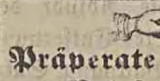 Präperate